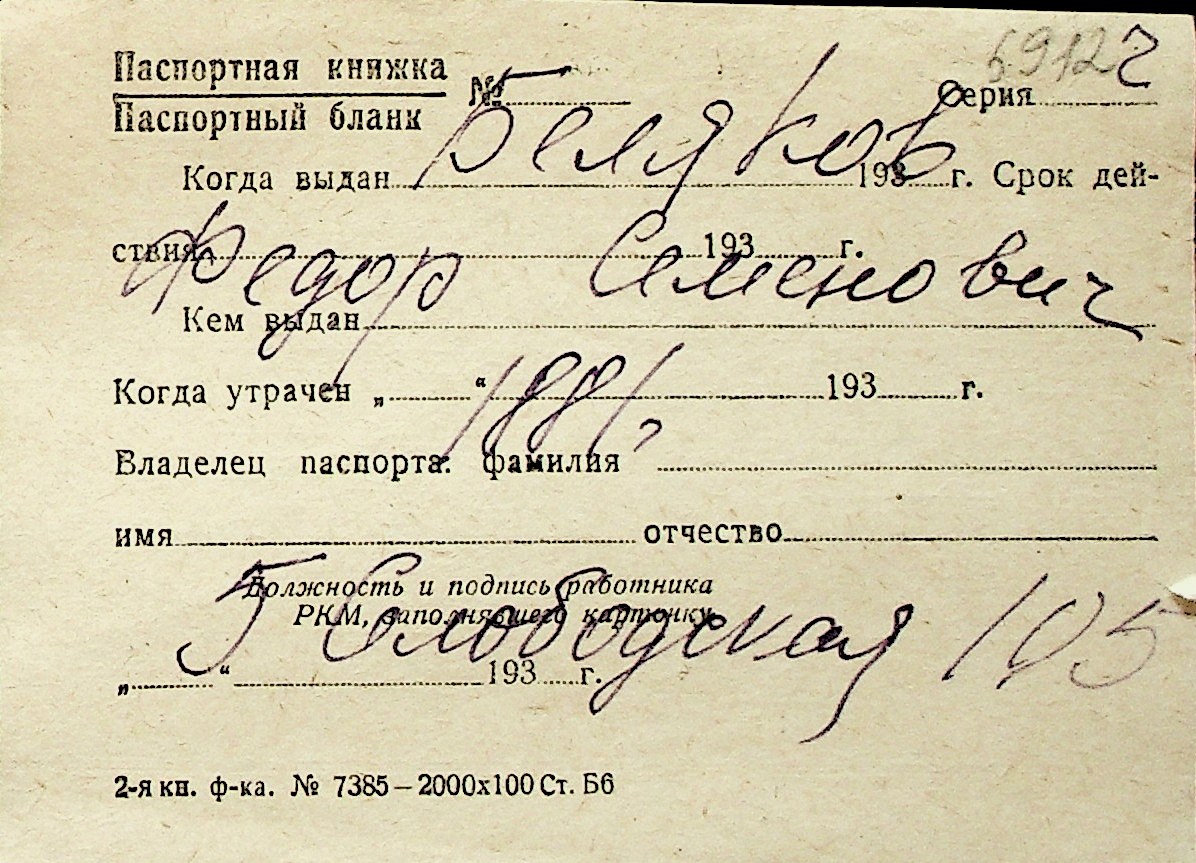 6912 2
Паспортная книжка
Паспортный бланк
№ Серия
Беляков
Когда выдан 193 г. Срок дей-
ствия 193 г.
Федор Семенович
Кем выдан
1881,
Когда утрачен „ “ 193 г.
Владелец паспорта: фамилия
имя отчество
Должность и подпись работника
РКМ, заполнявшего карточку
Б Слободская 105
„ “ 193 г.
2-я кн. ф-ка. № 7385—2000х100 Ст. Б6